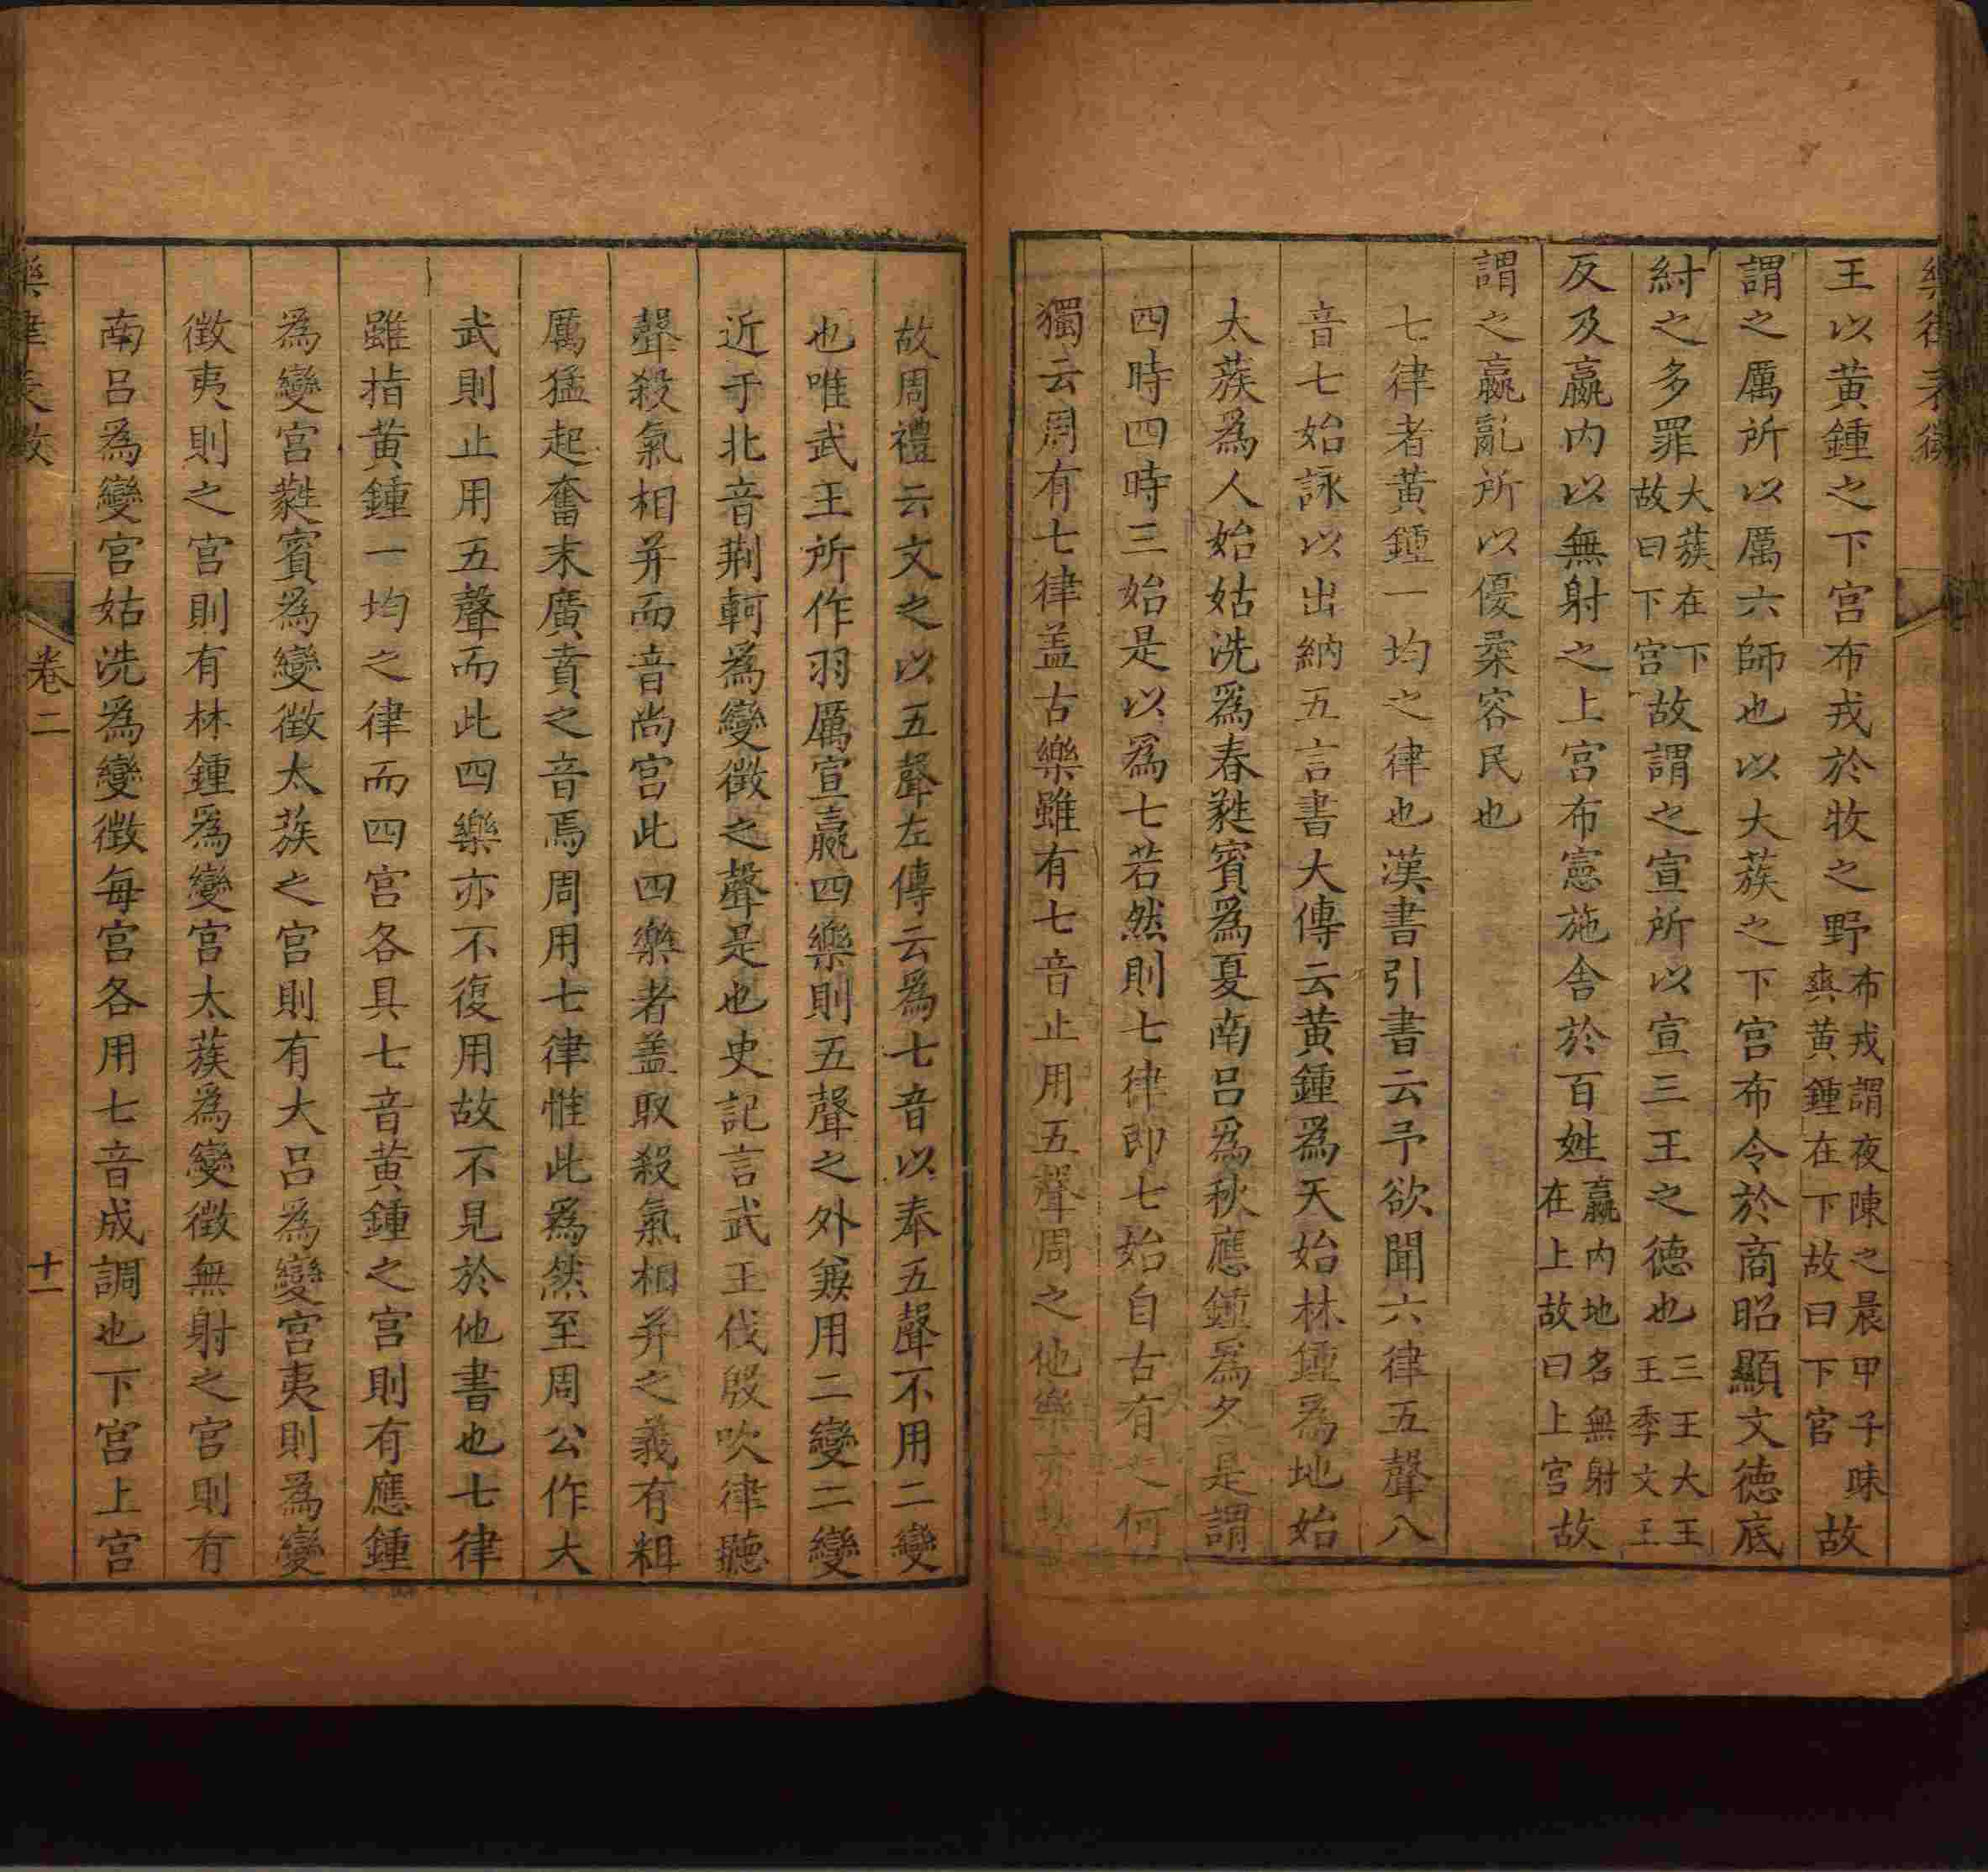 王以黃鍾之下宮布戎於牧之野布戎謂夜陳之晨甲子昧爽黃鍾在下故曰下宮故
謂之厲所以厲六師也以大蔟之下宮布令於商昭顯文德底
紂之多罪大蔟在下故曰下宮故謂之宣所以宣三王之德也三王大王王季文王
反及嬴內以無射之上宮布憲施舍於百姓嬴內地名無射在上故曰上宮故
謂之嬴亂所以優柔容民也
七律者黃鍾一均之律也漢書引書云予欲聞六律五聲八
音七始詠以出納五言書大傳云黃鍾為天始林鍾為地始
太蔟為人始姑洗為春蕤賓為夏南呂為秋應鍾為冬是謂
四時四時三始是以為七若然則七律即七始自古有之何
獨云周有七律盖古樂雖有七音止用五聲周之他樂亦
故周禮云文之以五聲左傳云為七音以奉五聲不用二變
也唯武王所作羽厲宣嬴四樂則五聲之外兼用二變二變
近于北音荆軻為變徵之聲是也史記言武王伐殷吹律聽
聲殺氣相并而音尚宮此四樂者盖取殺氣相并之義有粗
厲猛起奮末廣賁之音焉周用七律惟此為然至周公作大
武則止用五聲而此四樂亦不復用故不見於他書也七律
雖指黃鍾一均之律而四宮各具七音黃鍾之宮則有應鍾
為變宮蕤賓為變徵太蔟之宮則有大呂為變宮夷則為變
徵夷則之宮則有林鍾為變宮太蔟為變徵無射之宮則有
南呂為變宮姑洗為變徵每宮各用七音成調也下宮上宮
卷二
十一